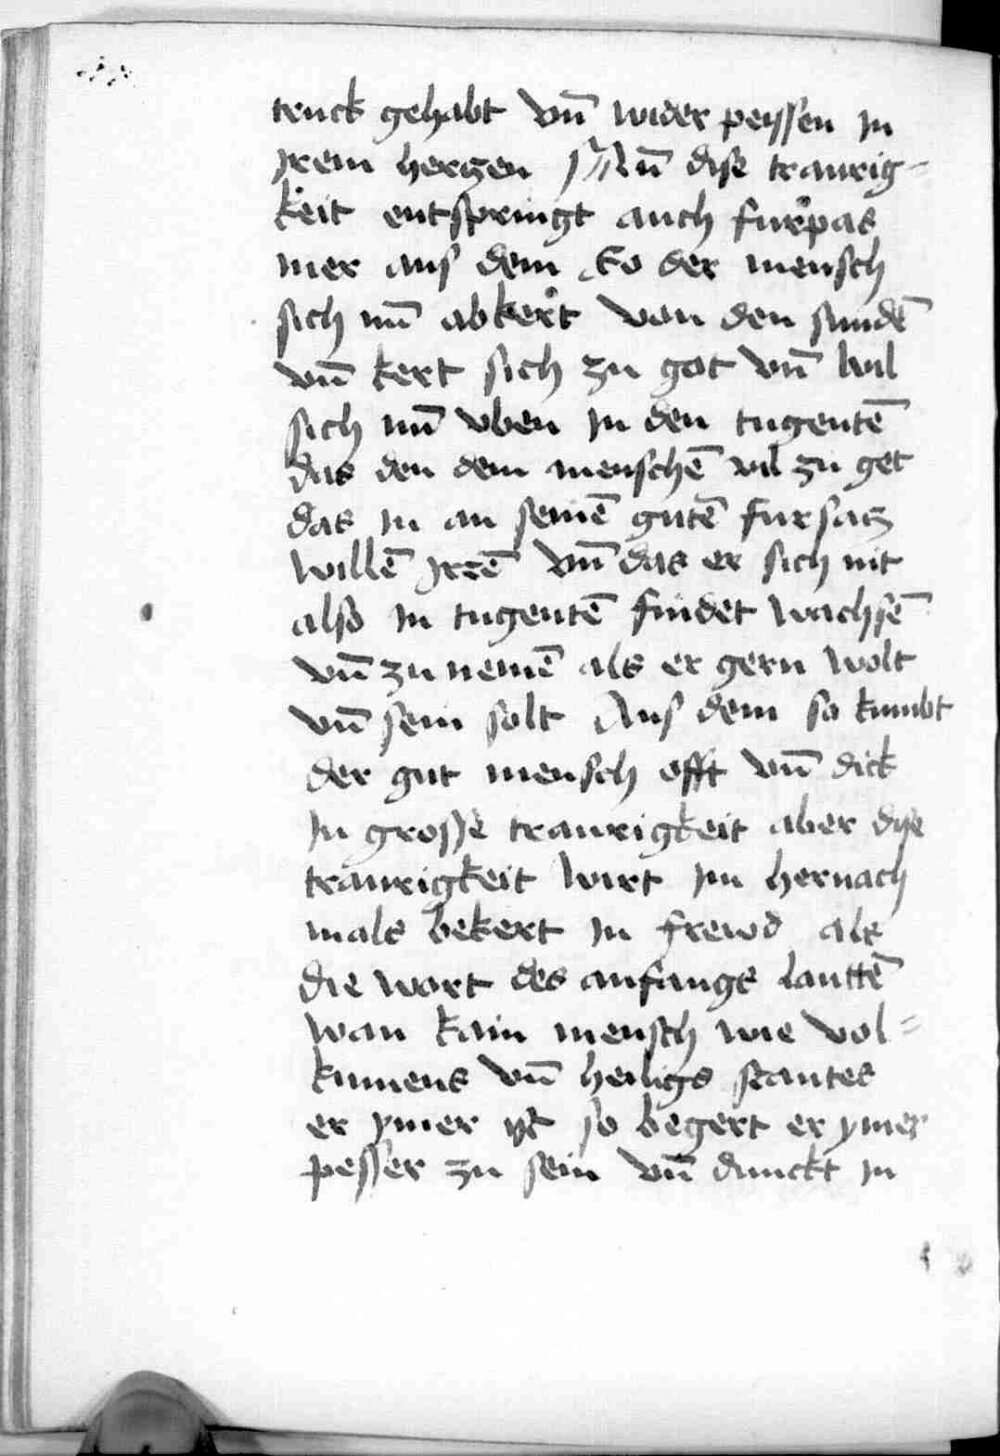 truck gehabt vn̄ wider peyssen in
jrem herczen Nun̄ dise traurig=
keit entspringt auch furpas
mer aus dem So der mensch
sich nu̅ abkert von den sundē
vn̄ kert sich zu got vn̄ wil
sich nu̅ vben in den tugentē
das den dem menschē vil zu get
das in an seinē gutē fursacz
willē jrrē vn̄ das er sich nit
also in tugentē findet wachsē
vn̄ zu nemē als er gern wolt
vn̄ sein solt Aus dem so kumbt
der gut mensch offt vn̄ dick
in grosse traurigkeit aber dise
traurigkeit wirt im hernach
mals bekert in frewd als
die wort des anfangs lauttē
wan kain mensch wie vol=
kumens vn̄ heiligs stantes
er ymer ist so begert er ymer
pesser zu sein vn̄ dunckt in